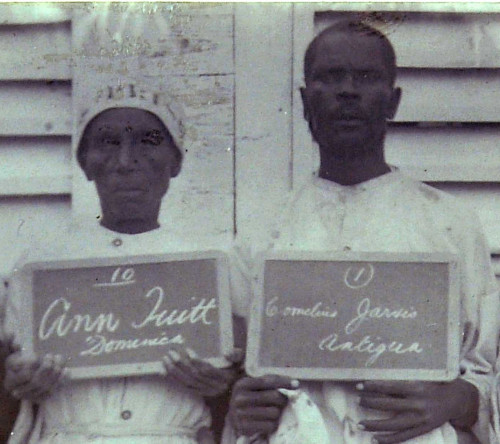 10
Ann Tuitt
Domenica
1
Cornelius Jarvis
Antigua